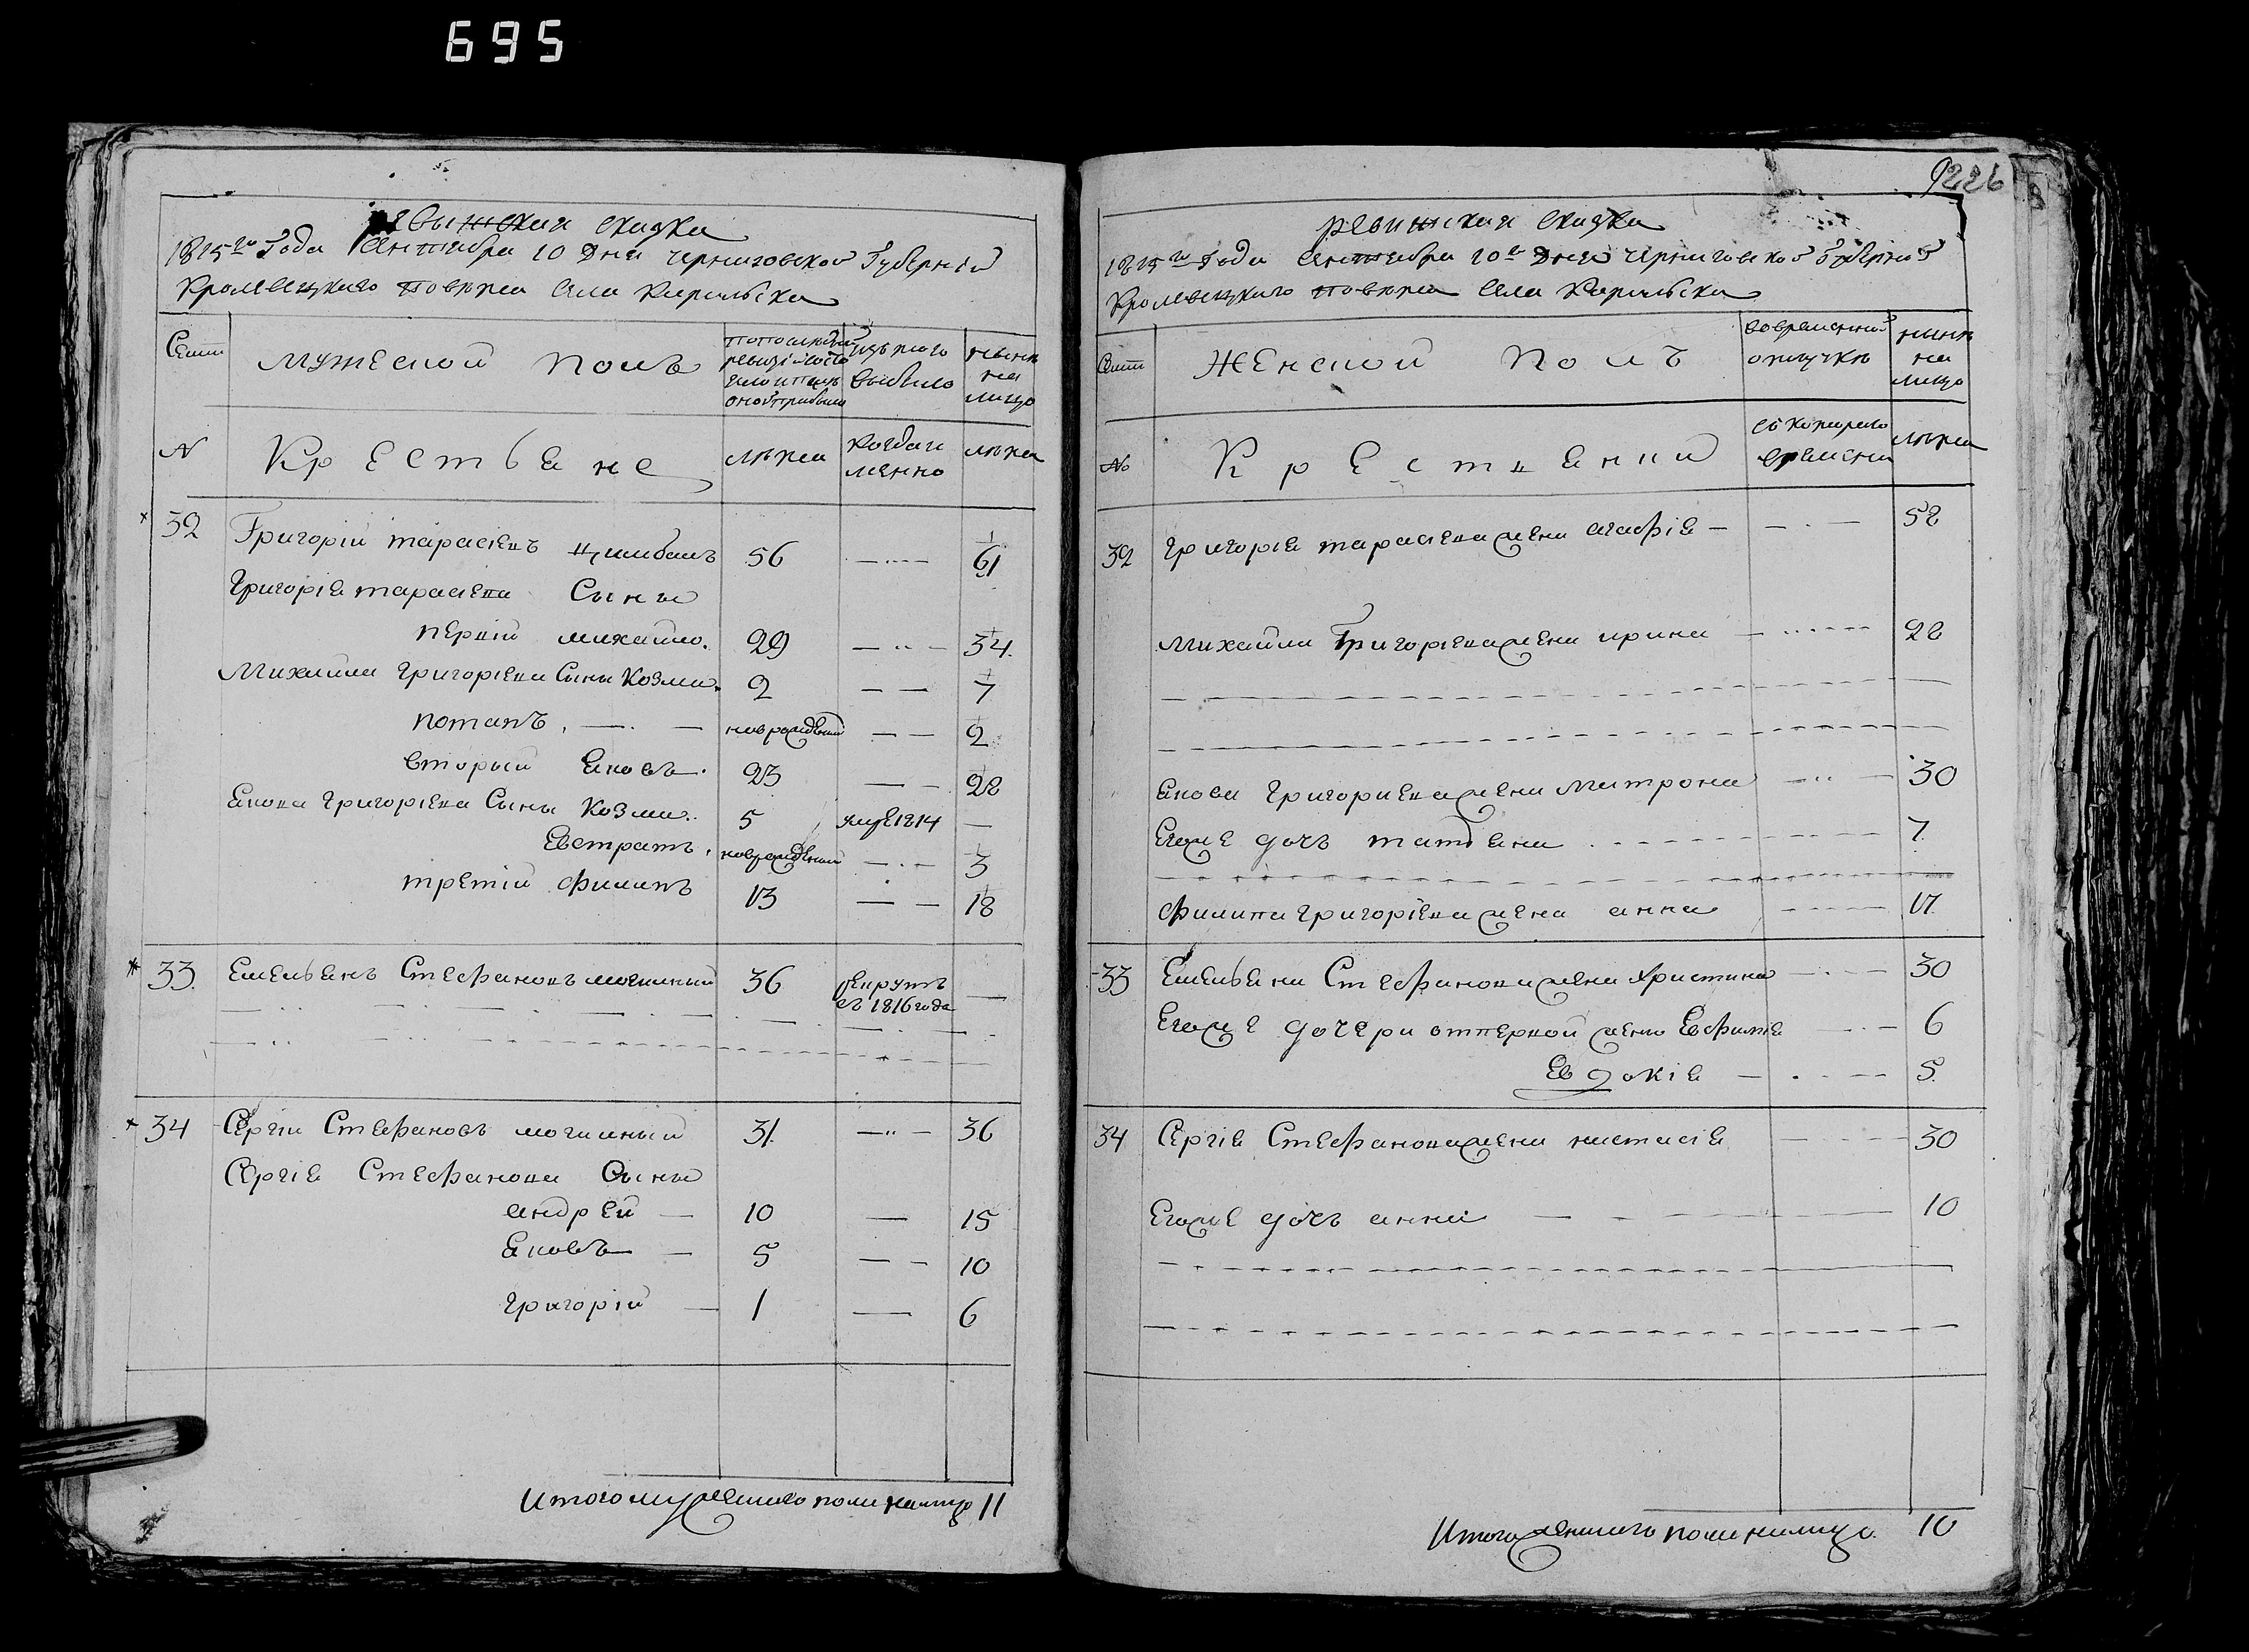 695
ревижская сказка
1815го Года Сентября 10 Дня черниговской Губерніи
Кролевецкаго повѣта села Карилска
Семи
мужеской полъ
попослѣдней ревизіи состояло и послѣ оной прибыло
изъ того выбыло
нынѣ на лицо
N
Крестьяне
лѣта
когда именно
лѣта
32 Григорій тарасіевъ цимбалъ 56 61
Григорія тарасіева Сыны
первій михайло. 29 34.
Михайла Григоріева Сынъ Козма. 2 7
потапъ. новрожденый 2
вторый Яковъ. 23 28
Якова григоріева Сыны Козма. 5 умре 1814
Евстратъ, новрожденый 3
третій филипъ 13 18
33. Емельянъ Стефановъ могилный 36 рекрутъ
съ 1816 года
34 Сергій Стефановъ могилный 31. 36
Сергія Стефанова Сыны
андрей 10 15
Яковъ 5 10
григорій 1 6
Итого мужеского пола налицо 11
226
ревижская Сказка
1815го Года Сентября 10е Дня черниговской Губерніи
Кролевецкаго повѣта Села Карилска
Семи
Женской полъ
вовременной отлучкѣ
нынѣ на лицо
No
Крестьянии
съ котораго времени
лѣта
32 григорія тарасіева жена агафія 52
Михайла Григоріева жена ирина 28
Якова григориева жена Матрона 30
Егоже дочь татіяна 7.
филипа григоріева жена анна 17.
33 Емельяна Стефанова жена христина 30
Егоже дочери отпервой жены Евфимія 6
Евдокія 5.
34 Сергія Стефанова жена настасія 30
Егоже дочь анна 10
Итого женского пола налицо. 10